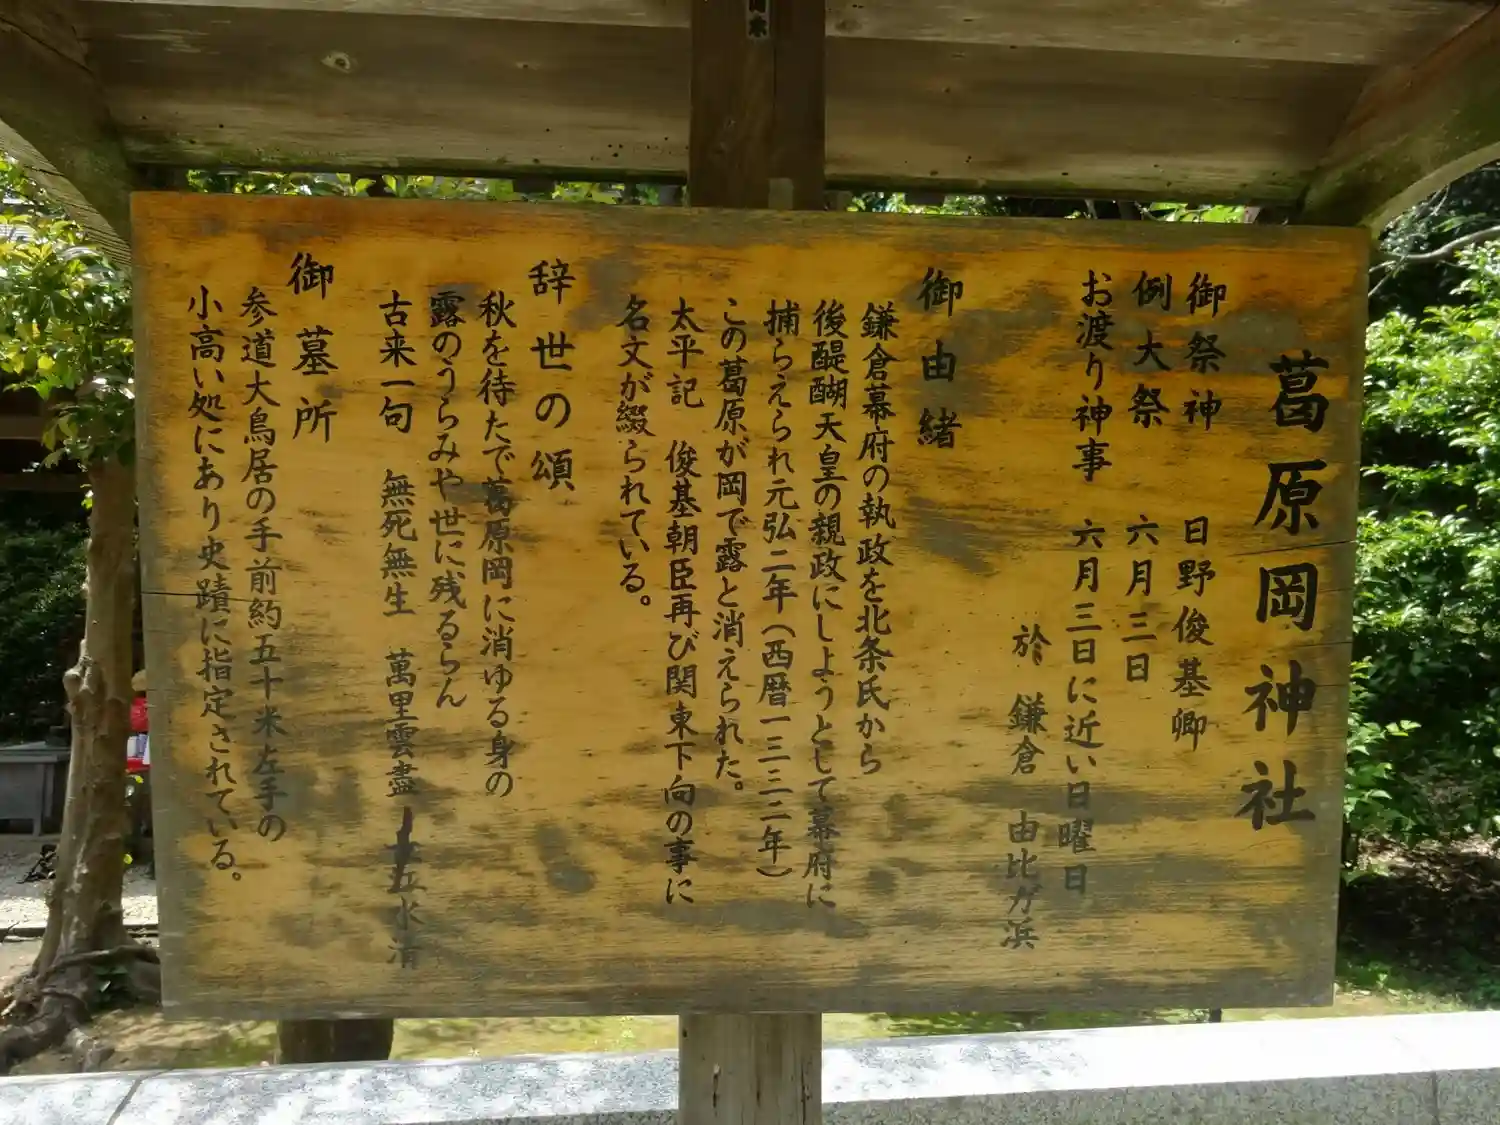 葛原岡神社
御祭神 日野俊基卿
例大祭 六月三日
お渡り神事 六月三日に近い日曜日
於 鎌倉 由比ガ浜
御由緒
鎌倉幕府の執政を北条氏から
後醍醐天皇の親政にしようとして幕府に
捕らえられ元弘二年(西暦一三三二年)
この葛原が岡で露と消えられた。
太平記 俊基朝臣再び関東下向の事に
名文が綴られている。
辞世の頌
秋を待たで葛原岡に消ゆる身の
露のうらみや世に残るらん
古来一句 無死無生 萬里雲盡 水清
御墓所
参道大鳥居の手前約五十米左手の
小高い処にあり史蹟に指定されている。